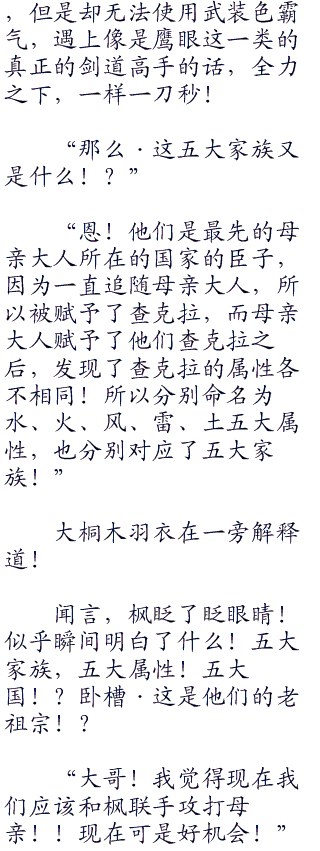 ，但是却无法使用武装色霸
气，遇上像是鹰眼这一类的
真正的剑道高手的话，全力
之下，一样一刀秒！
“那么·这五大家族又
是什么！？”
“恩！他们是最先的母
亲大人所在的国家的臣子，
因为一直追随母亲大人，所
以被赋予了查克拉，而母亲
大人赋予了他们查克拉之
后，发现了查克拉的属性各
不相同！所以分别命名为
水、火、风、雷、土五大属
性，也分别对应了五大家
族！”
大桐木羽衣在一旁解释
道！
闻言，枫眨了眨眼睛！
似乎瞬间明白了什么！五大
家族，五大属性！五大
国！？卧槽·这是他们的老
祖宗！？
“大哥！我觉得现在我
们应该和枫联手攻打母
亲！！现在可是好机会！”